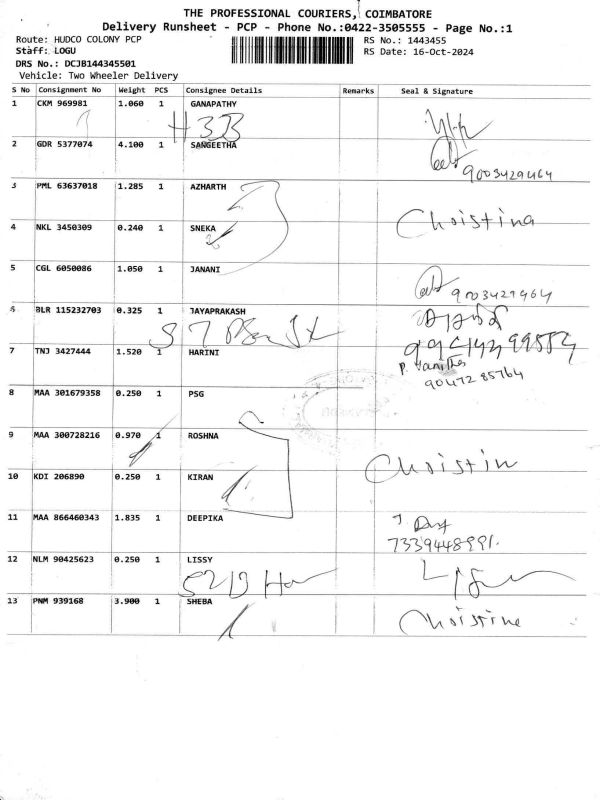 THE PROFESSIONAL COURIERS, COIMBATORE
Delivery Runsheet - PCP - Phone No.:0422-3505555 - Page No.:1
Route: HUDCO COLONY PCP
RS No.: 1443455
Staff: LOGU
RS Date: 16-Oct-2024
DRS No.: DCJB144345501
Vehicle: Two Wheeler Delivery
S No Consignment No Weight PCS Consignee Details Remarks Seal & Signature
1 CKM 969981 1.060 1 GANAPATHY
H 33
2 GDR 5377074 4.100 1 SANGEETHA
9003429464
3 PML 63637018 1.285 1 AZHARTH
Christina
4 NKL 3450309 0.240 1 SNEKA
5 CGL 6050086 1.050 1 JANANI
9003429464
6 BLR 115232703 0.325 1 JAYAPRAKASH
7 TNJ 3427444 1.520 1 HARINI
90472 85764
8 MAA 301679358 0.250 1 PSG
9 MAA 300728216 0.970 1 ROSHNA
Christin
10 KDI 206890 0.250 1 KIRAN
11 MAA 866460343 1.835 1 DEEPIKA
7339448991.
12 NLM 90425623 0.250 1 LISSY
13 PNM 939168 3.900 1 SHEBA
Christine